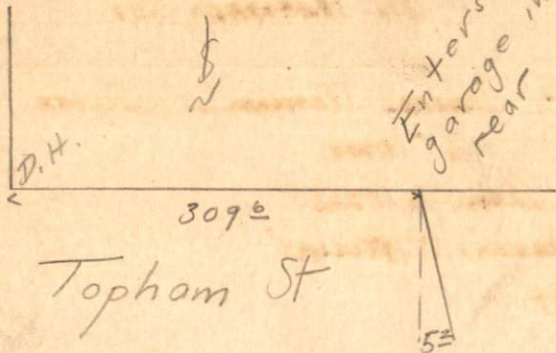 Enters
garage in
rear
D.H.
309⁶
Topham St
5²